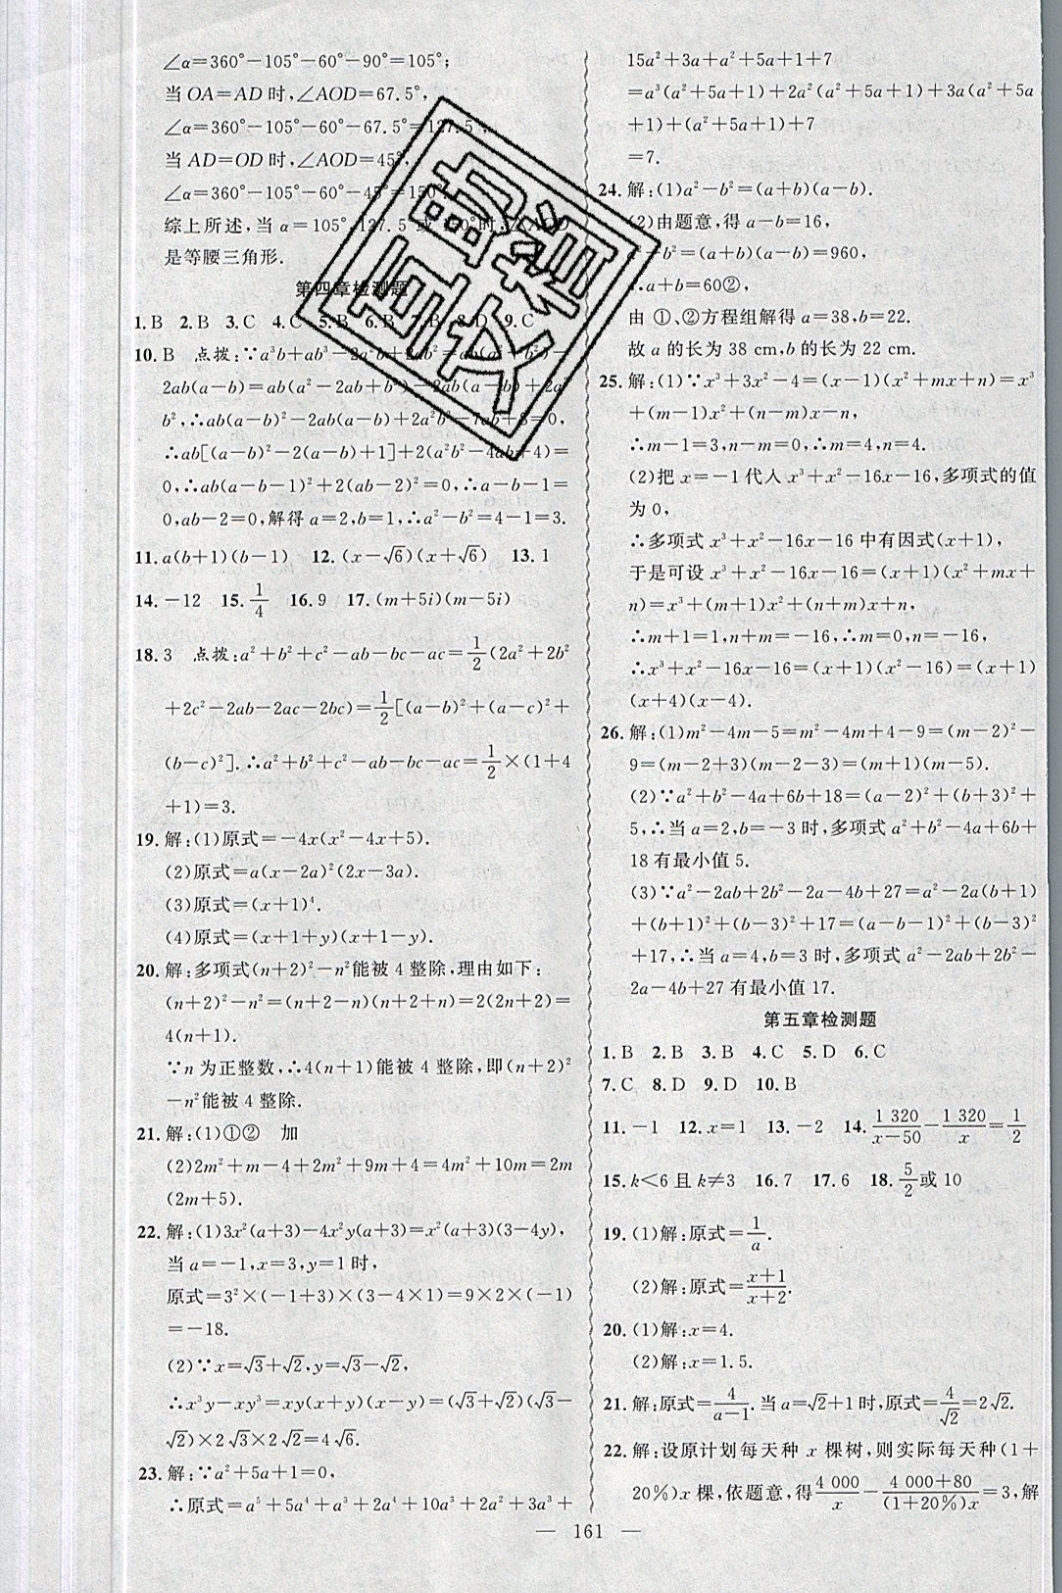 ∠α=360°-105°-60°-90°=105°;
当OA=AD时,∠AOD=67.5°,
∠α=360°-105°-60°-67.5°=127.5°,
当AD=OD时,∠AOD=45°,
∠α=360°-105°-60°-45°=150°,
综上所述,当α=105°,127.5°或150°时,△AOD
是等腰三角形.
第四章检测题
1.B 2.B 3.C 4.C 5.B 6.B 7.B 8.D 9.C
10.B 点拨:∵a³b+ab³-2a²b+2ab²=ab(a²+b²)-
2ab(a-b)=ab(a²-2ab+b²)-2ab(a-b)+2a²
b²,∴ab(a-b)²-2ab(a-b)+2a²b²-7ab+8=0,
∴ab[(a-b)²-2(a-b)+1]+2(a²b²-4ab+4)=
0,∴ab(a-b-1)²+2(ab-2)²=0,∴a-b-1=
0,ab-2=0,解得a=2,b=1,∴a²-b²=4-1=3.
11.a(b+1)(b-1) 12.(x-√6)(x+√6) 13.1
14.-12 15.1/4 16.9 17.(m+5i)(m-5i)
18.3 点拨:a²+b²+c²-ab-bc-ac=1/2(2a²+2b²
+2c²-2ab-2ac-2bc)=1/2[(a-b)²+(a-c)²+
(b-c)²].∴a²+b²+c²-ab-bc-ac=1/2×(1+4
+1)=3.
19.解:(1)原式=-4x(x²-4x+5).
(2)原式=a(x-2a)²(2x-3a).
(3)原式=(x+1)⁴.
(4)原式=(x+1+y)(x+1-y).
20.解:多项式(n+2)²-n²能被4整除,理由如下:
(n+2)²-n²=(n+2-n)(n+2+n)=2(2n+2)=
4(n+1).
∵n为正整数,∴4(n+1)能被4整除,即(n+2)²
-n²能被4整除.
21.解:(1)①② 加
(2)2m²+m-4+2m²+9m+4=4m²+10m=2m
(2m+5).
22.解:(1)3x²(a+3)-4x²y(a+3)=x²(a+3)(3-4y),
当a=-1,x=3,y=1时,
原式=3²×(-1+3)×(3-4×1)=9×2×(-1)
=-18.
(2)∵x=√3+√2,y=√3-√2,
∴x³y-xy³=xy(x+y)(x-y)=(√3+√2)(√3-
√2)×2√3×2√2=4√6.
23.解:∵a²+5a+1=0,
∴原式=a⁵+5a⁴+a³+2a⁴+10a³+2a²+3a³+
15a²+3a+a²+5a+1+7
=a³(a²+5a+1)+2a²(a²+5a+1)+3a(a²+5a
+1)+(a²+5a+1)+7
=7.
24.解:(1)a²-b²=(a+b)(a-b).
(2)由题意,得a-b=16,
a²-b²=(a+b)(a-b)=960,
∴a+b=60②,
由①、②方程组解得a=38,b=22.
故a的长为38 cm,b的长为22 cm.
25.解:(1)∵x³+3x²-4=(x-1)(x²+mx+n)=x³
+(m-1)x²+(n-m)x-n,
∴m-1=3,n-m=0,∴m=4,n=4.
(2)把x=-1代入x³+x²-16x-16,多项式的值
为0,
∴多项式x³+x²-16x-16中有因式(x+1),
于是可设x³+x²-16x-16=(x+1)(x²+mx+
n)=x³+(m+1)x²+(n+m)x+n,
∴m+1=1,n+m=-16,∴m=0,n=-16,
∴x³+x²-16x-16=(x+1)(x²-16)=(x+1)
(x+4)(x-4).
26.解:(1)m²-4m-5=m²-4m+4-9=(m-2)²-
9=(m-2+3)(m-2-3)=(m+1)(m-5).
(2)∵a²+b²-4a+6b+18=(a-2)²+(b+3)²+
5,∴当a=2,b=-3时,多项式a²+b²-4a+6b+
18有最小值5.
(3)∵a²-2ab+2b²-2a-4b+27=a²-2a(b+1)
+(b+1)²+(b-3)²+17=(a-b-1)²+(b-3)²
+17,∴当a=4,b=3时,多项式a²-2ab+2b²-
2a-4b+27有最小值17.
第五章检测题
1.B 2.B 3.B 4.C 5.D 6.C
7.C 8.D 9.D 10.B
11.-1 12.x=1 13.-2 14.1 320/(x-50)-1 320/x=1/2
15.k<6且k≠3 16.7 17.6 18.5/2或10
19.(1)解:原式=1/a.
(2)解:原式=(x+1)/(x+2).
20.(1)解:x=4.
(2)解:x=1.5.
21.解:原式=4/(a-1).当a=√2+1时,原式=4/√2=2√2.
22.解:设原计划每天种x棵树,则实际每天种(1+
20%)x棵,依题意,得4 000/x-(4 000+80)/((1+20%)x)=3,解
— 161 —